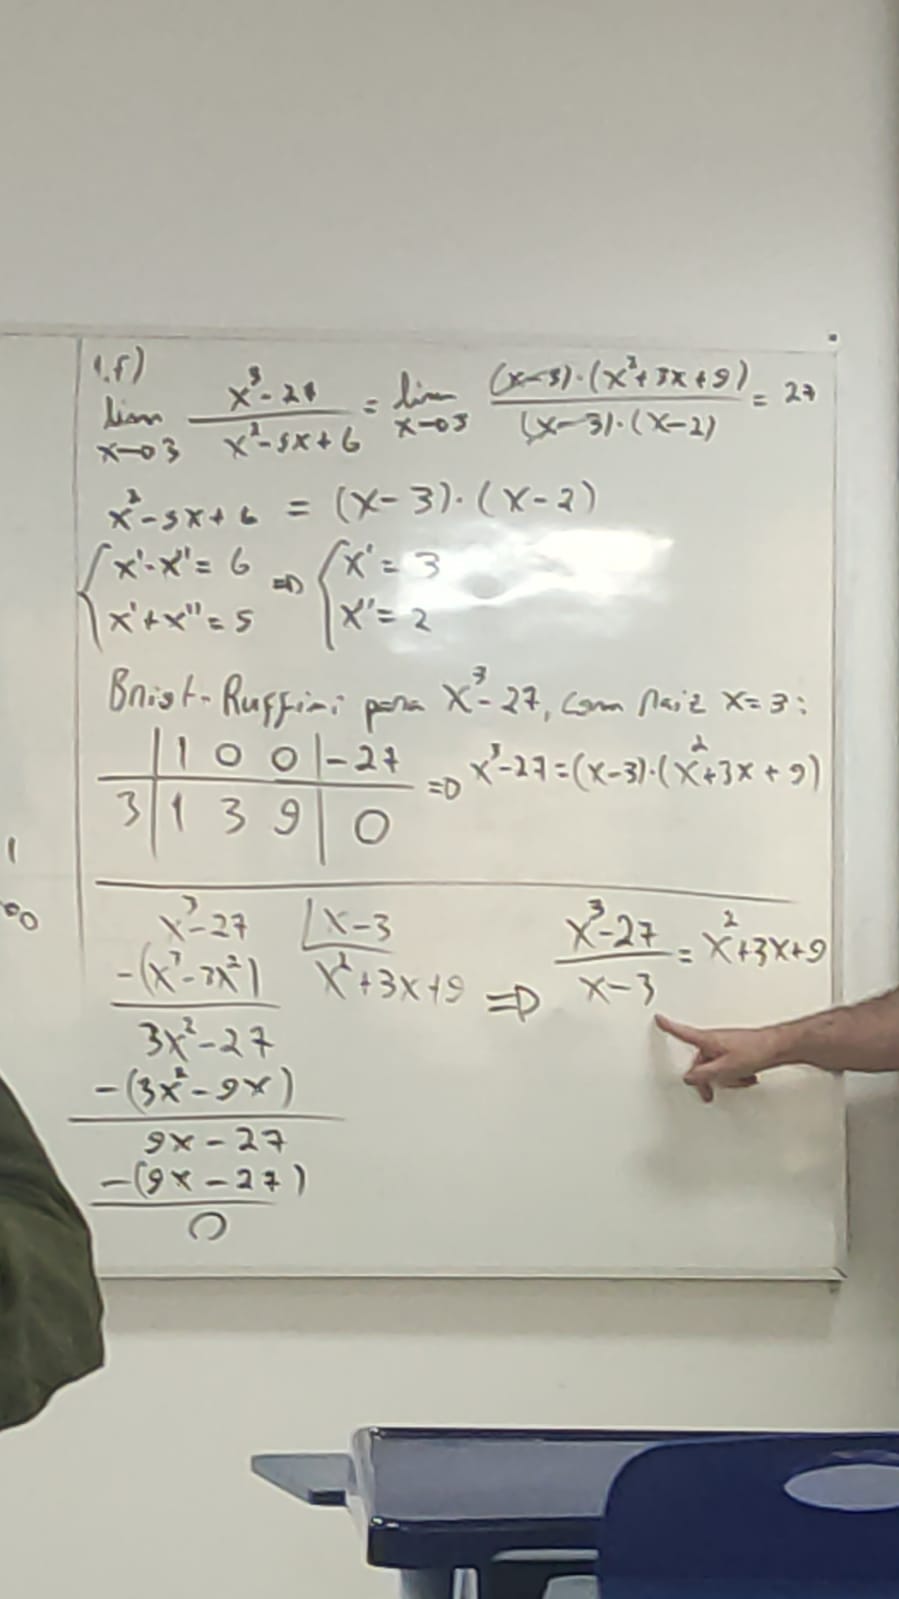 1.f)
lim x→3 (x³-27)/(x²-5x+6) = lim x→3 ((x-3)·(x²+3x+9))/((x-3)·(x-2)) = 27
x²-5x+6 = (x-3)·(x-2)
{x'·x''= 6 ⇒ {x' = 3
{x'+x''= 5 {x''= 2
Briot-Ruffini para x³-27, com raiz x=3:
| 1 0 0 | -27
3 | 1 3 9 | 0 ⇒ x³-27=(x-3)·(x²+3x+9)
x³-27 |x-3
-(x³-3x²) x²+3x+9 ⇒ (x³-27)/(x-3) = x²+3x+9
3x²-27
-(3x²-9x)
9x-27
-(9x-27)
0
1
∞